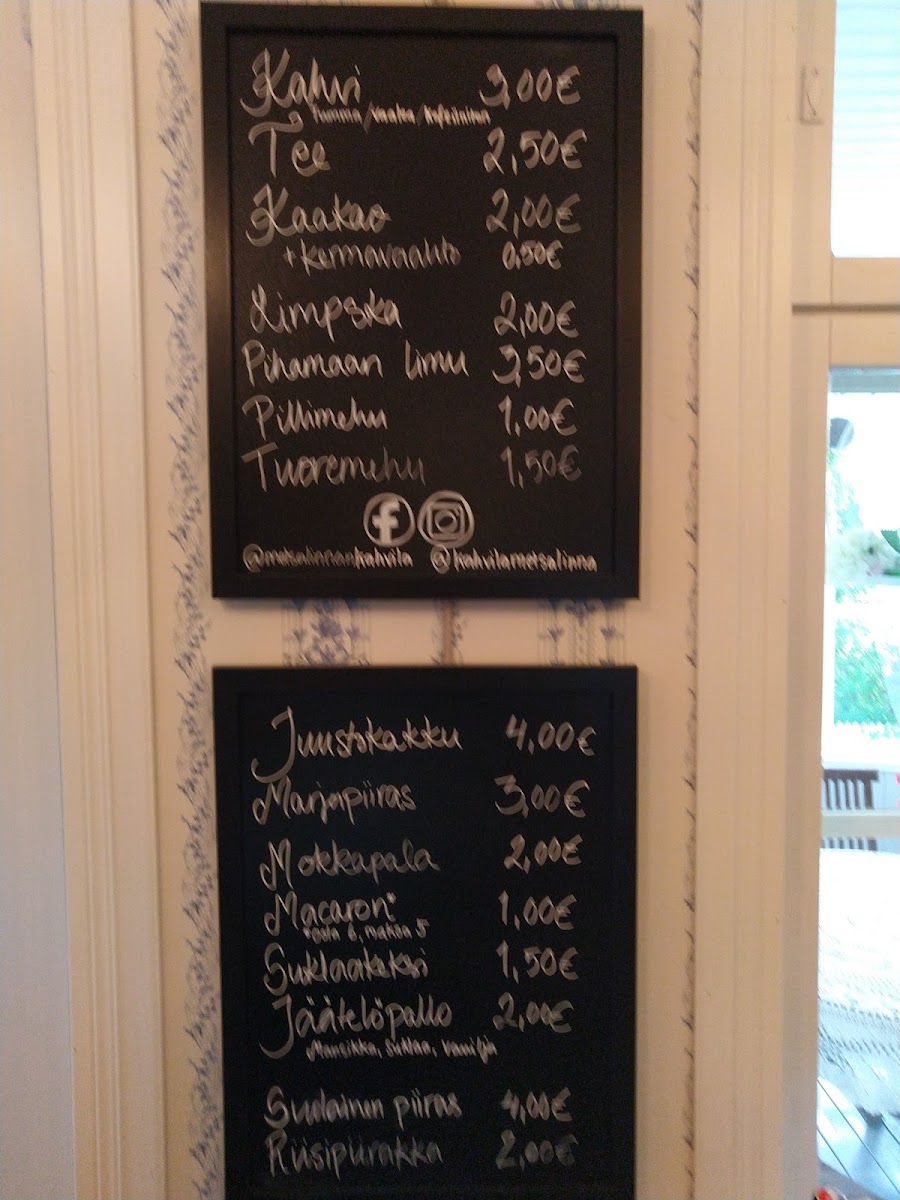 Kahvi 3,00€
Tumma/vaalea/kofeiiniton
Tee 2,50€
Kaakao 2,00€
+ kermavaahto 0,50€
Limpska 2,00€
Pihamaan limu 3,50€
Pillimehu 1,00€
Tuoremehu 1,50€
@metsalinnankahvila @kahvilametsalinna
Juustokakku 4,00€
Marjapiiras 3,00€
Mokkapala 2,00€
Macaron* 1,00€
*osta 6, maksa 5
Suklaakeksi 1,50€
Jäätelöpallo 2,00€
Mansikka, suklaa, vanilja
Suolainen piiras 4,00€
Riisipiirakka 2,00€